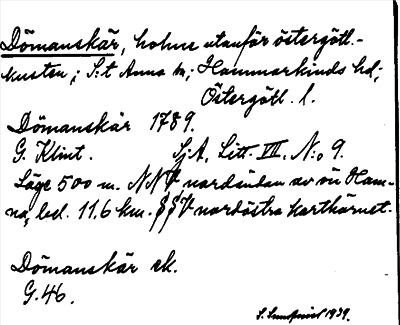 Dömanskär, holme utanför östergötl.-
kusten; S:t Anna sn; Hammarkinds hd;
Östergötl. l.
Dömanskär 1789.
G. Klint. Sj.A, Litt. VII. N:o 9.
Läge 500 m. NNV nordändan av ön Ham-
nö, bel. 11.6 km. SSV nordöstra karthörnet.
Dömanskär ek.
G.46.
S. 1939.